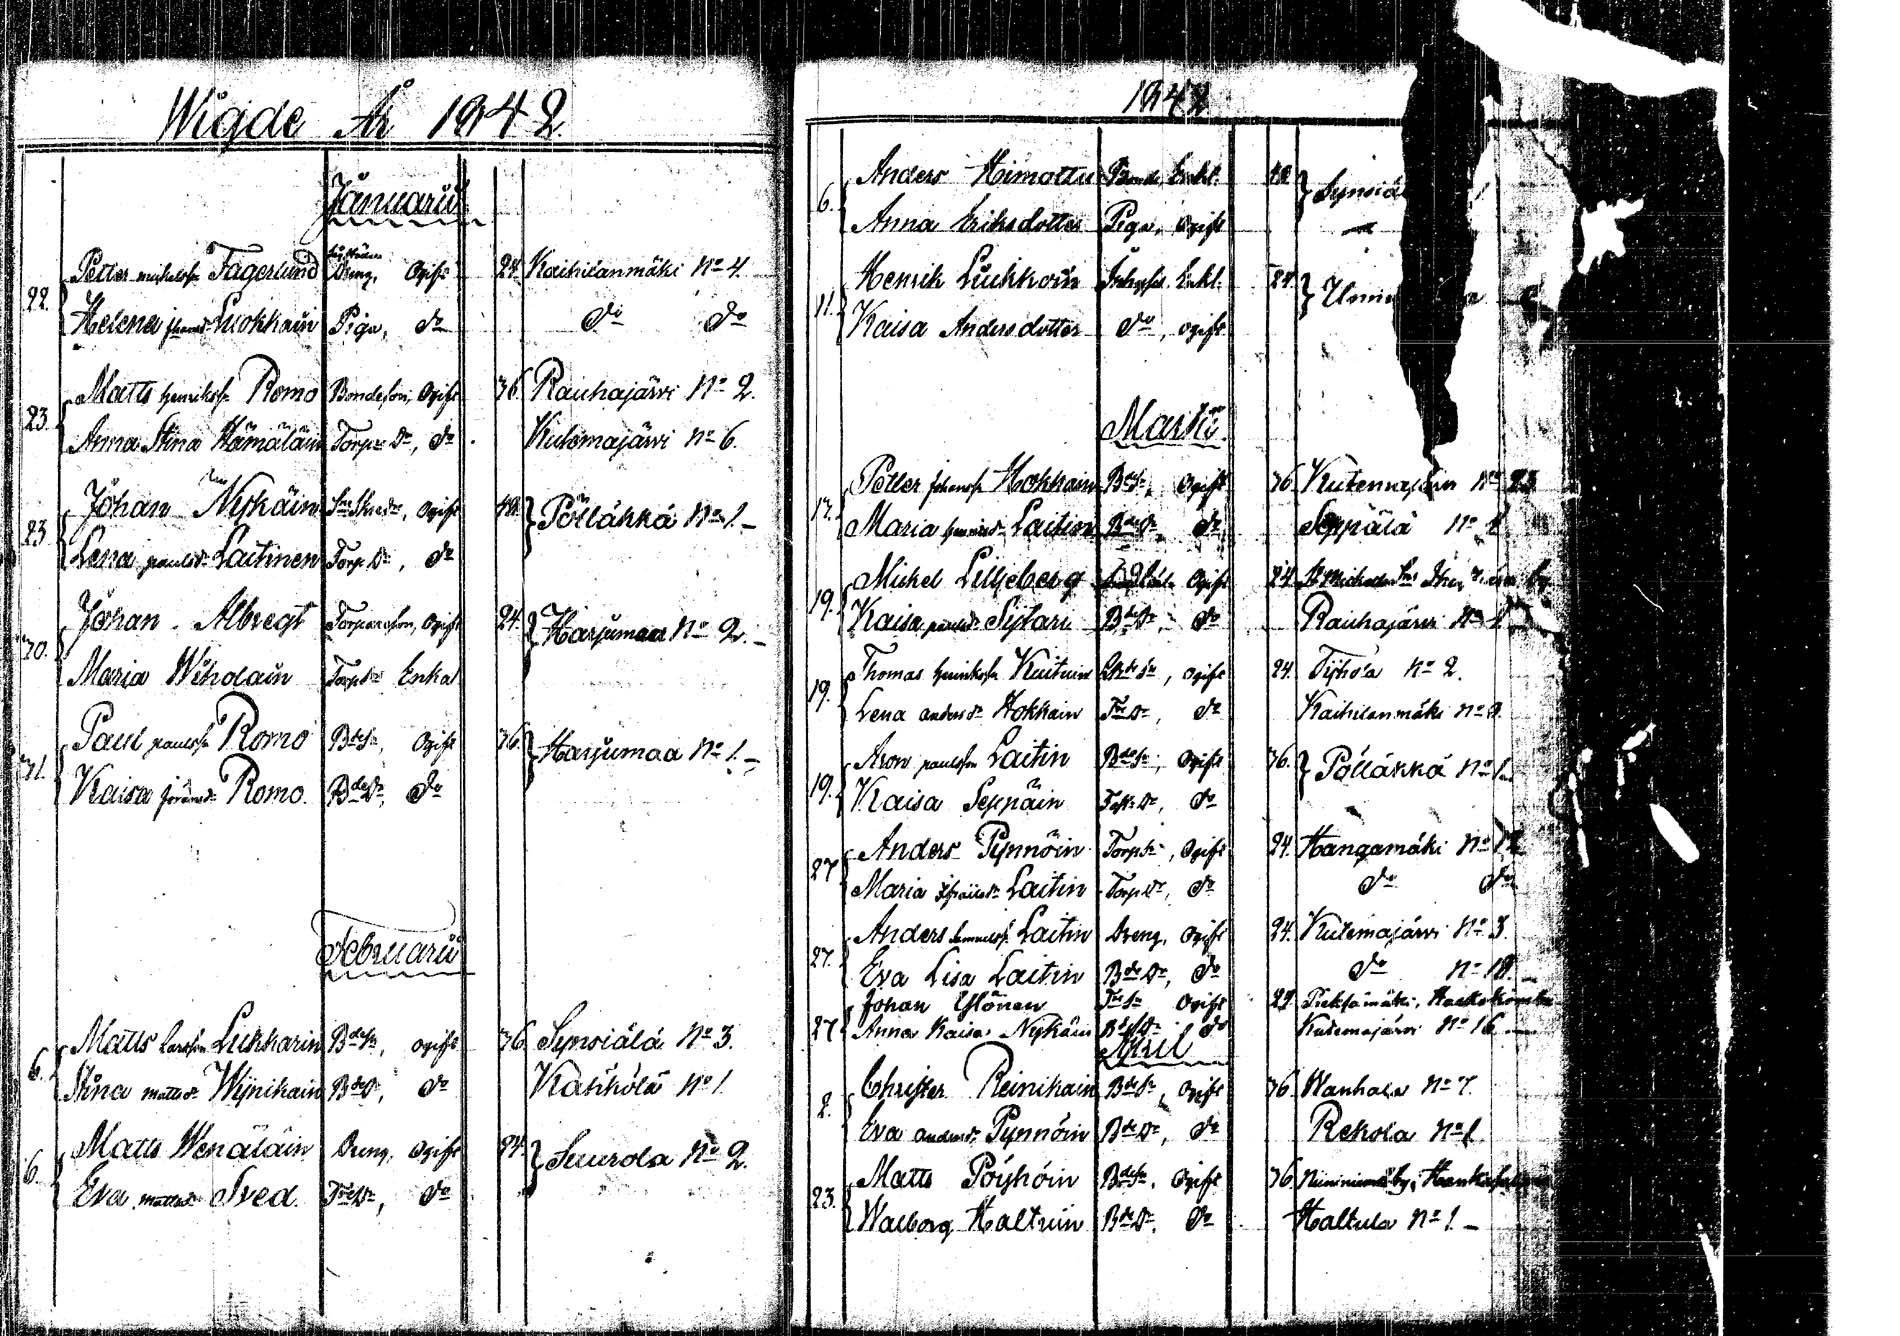 Wigde År 1842.
Januarii
22. Petter michelss. Fagerlund Dreng, Ogift 24. Kaihilanmäki No 4.
Helena Luokkain Piga, do do do
23. Matts henrikss. Romo Bondeson, Ogift 76. Rauhajärvi No 2.
Anna Stina Hämäläin Torp. Dr, do Kutemajärvi No 6.
23. Johan Nykäin Ogift 48. Pölläkkä No 1.
Lena paulsdr Laitinen Torp. Dr, do
30. Johan Albregt Torpareson, Ogift 24. Harjumaa No 2.
Maria Wiholain Torp. Dr Enka
31. Paul paulss. Romo Bdesn, Ogift 76. Harjumaa No 1.
Kaisa Romo. BdeDr, do
Februarii
6. Matts larsson Lukkarin Bdesn, ogift 76. Synsiälä No 3.
Stina mattsdr Wijnikain BdeDr, do Kärkkölä No 1.
6. Matts Wenäläin Dreng, Ogift 24. Suurola No 2.
Eva mattsdr Sved. Do, do
1842
6. Anders Himottu Bonde, Enkl. 48
Anna Eriksdotter Piga, Ogift
11. Henrik Liukkoin Inhyses Enkl. 24.
Kaisa Andersdotter do, ogift
Martii.
17. Petter johanss. Hokkain Bdesn, Ogift 76. Kutemajärvi No 23
Maria Laitin BdeDr, do Seppälä No
19. Michel Lilljeberg Ogift 24.
Kaisa paulsdr Sijtari BdeDr, do Rauhajärvi No
19. Thomas henrikss. Kuituin ogift 24. Tyhölä No 2.
Lena andersdr Hokkain do Kaihilanmäki No
19. Aron paulson Laitin Bdesn, Ogift 76. Pölläkkä No 1.
Kaisa Seppäin do
27 Anders Pynnöin Torp. Sn, Ogift 24. Hangamäki No
Maria Laitin Torp. Dr, do do do
27. Anders samuelss. Laitin Dreng, Ogift 24. Kutemajärvi No 3.
Eva Lisa Laitin BdeDr, do do No 18.
27 Johan Ylönen Ogift 24 Pieksämäki,
Anna Kaisa Nykäin BdeDr do Kutemajärvi No 16
April
2. Christer Reinikain Bdesn, Ogift 76. Wanhala No 7.
Eva andersdr Pynnöin BdeDr, do Rekola No 1
23. Matts Pöyhöin Bdesn, Ogift 76
Walborg Haltuin BdeDr, do Haltula No 1.